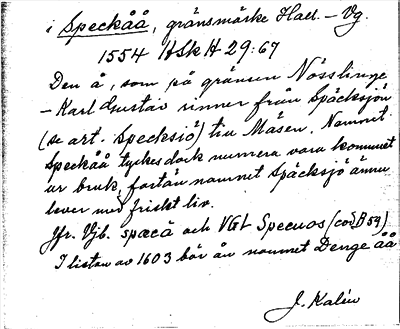 i Speckåå, gränsmärke Hall. – Vg.
1554 HSk H 29:67
Den å, som på gränsen Nösslinge
– Karl Gustav rinner från Späcksjön
(se art. Specksiö) till Måsen. Namnet
Speckåå tyckes dock numera vara kommet
ur bruk, fastän namnet Späcksjö ännu
lever med friskt liv.
Jfr. Vjb. spæcå och VGL Specuos (cod B 59)
I listan av 1603 bär ån namnet Denge åå
J. Kalén